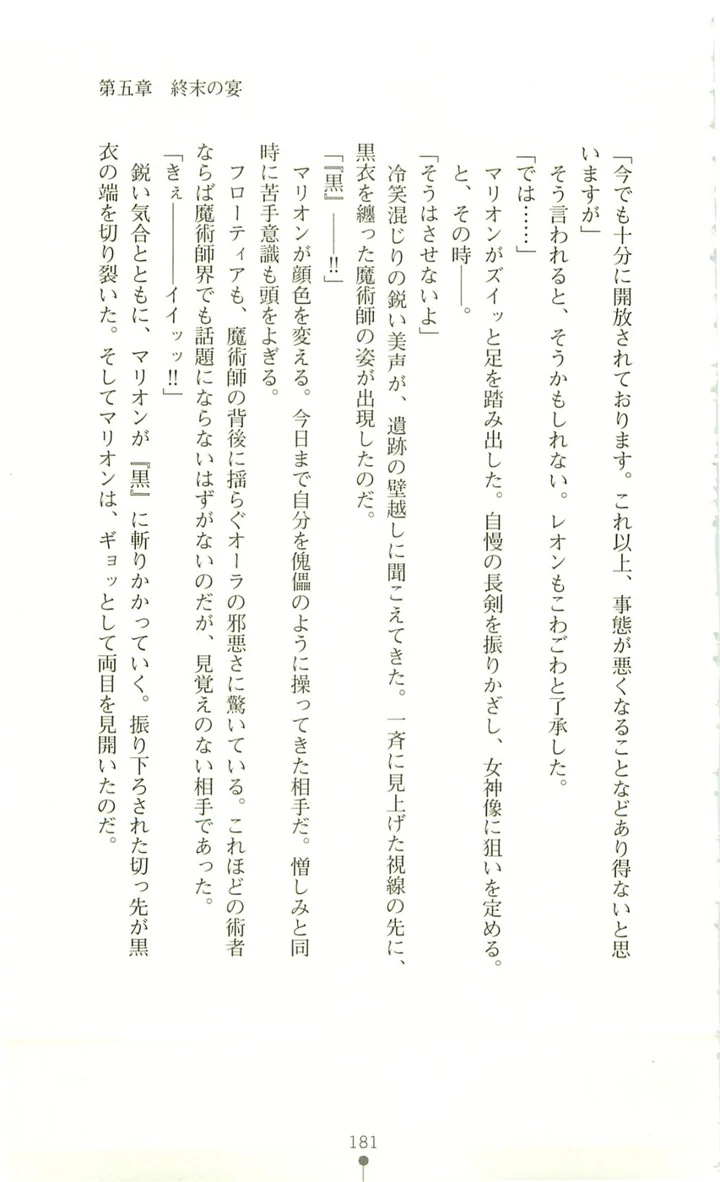 第五章　終末の宴
「今でも十分に開放されております。これ以上、事態が悪くなることなどあり得ないと思
いますが」
　そう言われると、そうかもしれない。レオンもこわごわと了承した。
「では……」
　マリオンがズイッと足を踏み出した。自慢の長剣を振りかざし、女神像に狙いを定める。
　と、その時――。
「そうはさせないよ」
　冷笑混じりの鋭い美声が、遺跡の壁越しに聞こえてきた。一斉に見上げた視線の先に、
黒衣を纏った魔術師の姿が出現したのだ。
「『黒』――!!」
　マリオンが顔色を変える。今日まで自分を傀儡のように操ってきた相手だ。憎しみと同
時に苦手意識も頭をよぎる。
　フローティアも、魔術師の背後に揺らぐオーラの邪悪さに驚いている。これほどの術者
ならば魔術師界でも話題にならないはずがないのだが、見覚えのない相手であった。
「きぇ――――イイッッ!!」
　鋭い気合とともに、マリオンが『黒』に斬りかかっていく。振り下ろされた切っ先が黒
衣の端を切り裂いた。そしてマリオンは、ギョッとして両目を見開いたのだ。
181